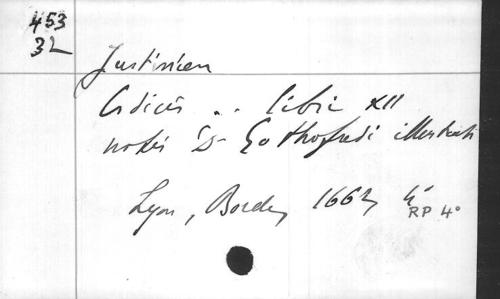 453
32
Justinien
Codicis .. libri XII
notis D. Gothofredi illustrati
Lyon, Borde, 1662, 4°
RP 4°